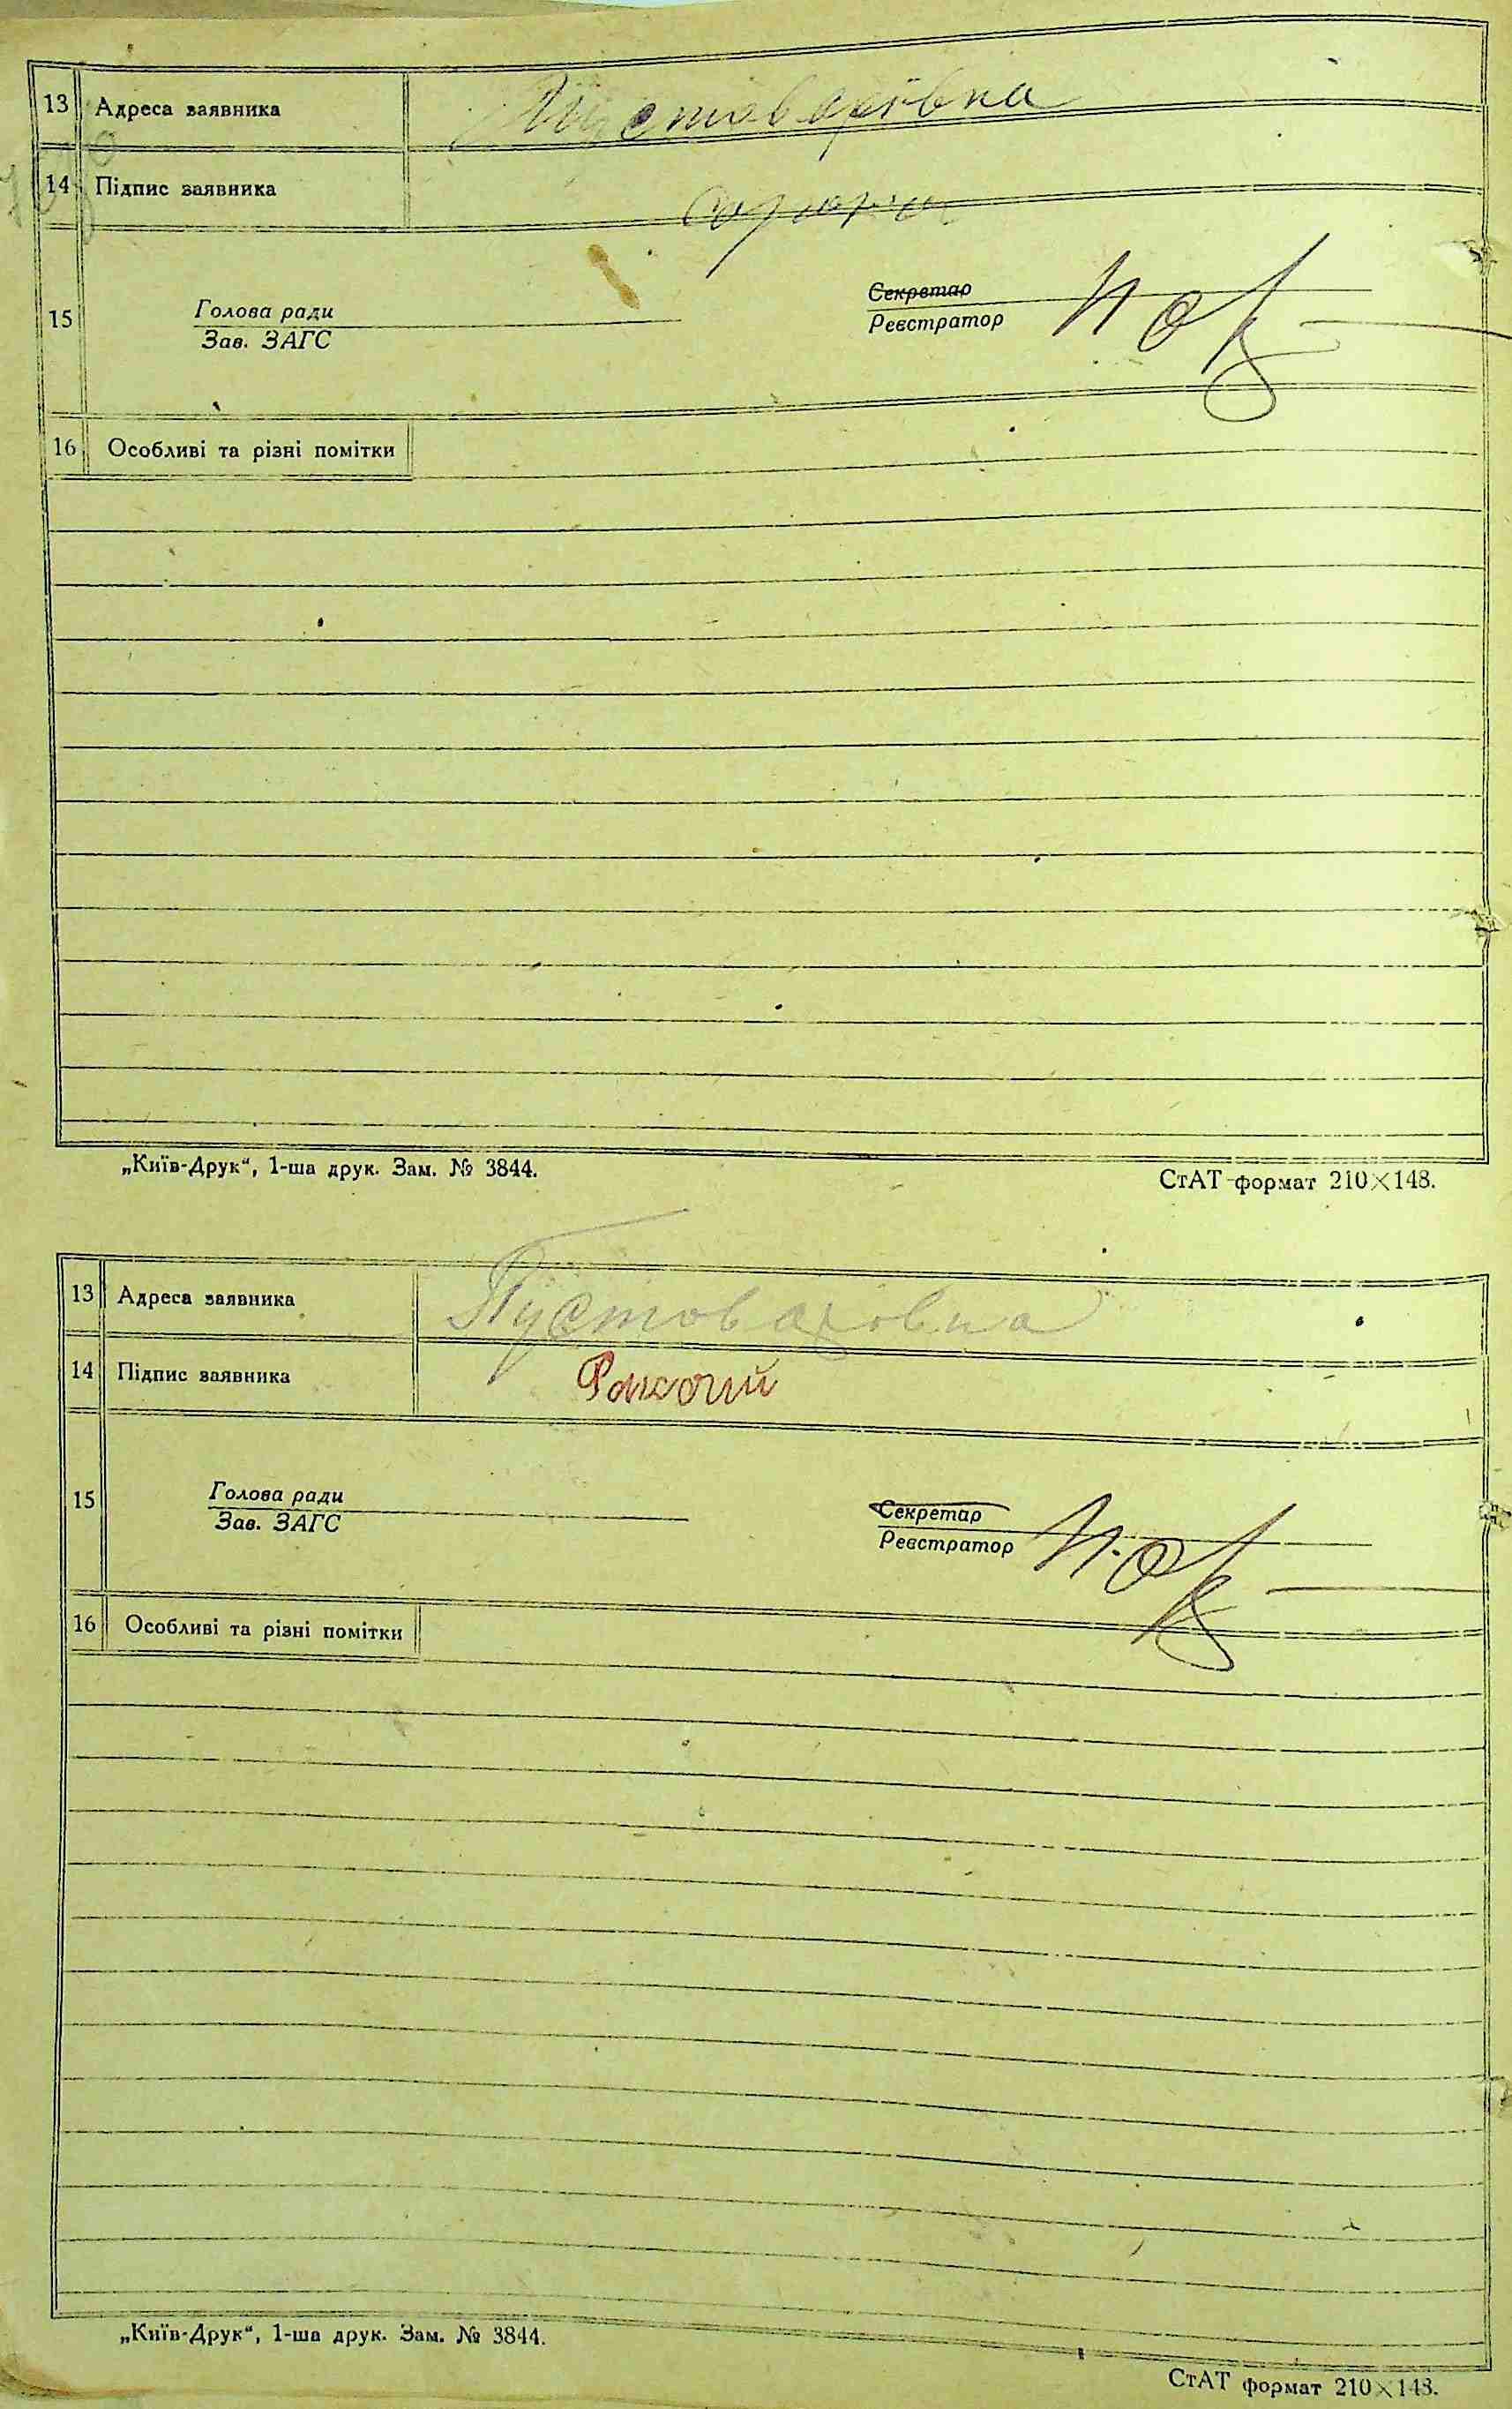 13 Адреса заявника Пустоварівка
14 Підпис заявника
15 Голова ради Секретар
Зав. ЗАГС Реєстратор
16 Особливі та різні помітки
„Київ-Друк“, 1-ша друк. Зам. № 3844. СтАТ формат 210×148.
13 Адреса заявника Пустоваровка
14 Підпис заявника
15 Голова ради Секретар
Зав. ЗАГС Реєстратор
16 Особливі та різні помітки
„Київ-Друк“, 1-ша друк. Зам. № 3844.
СтАТ формат 210×148.